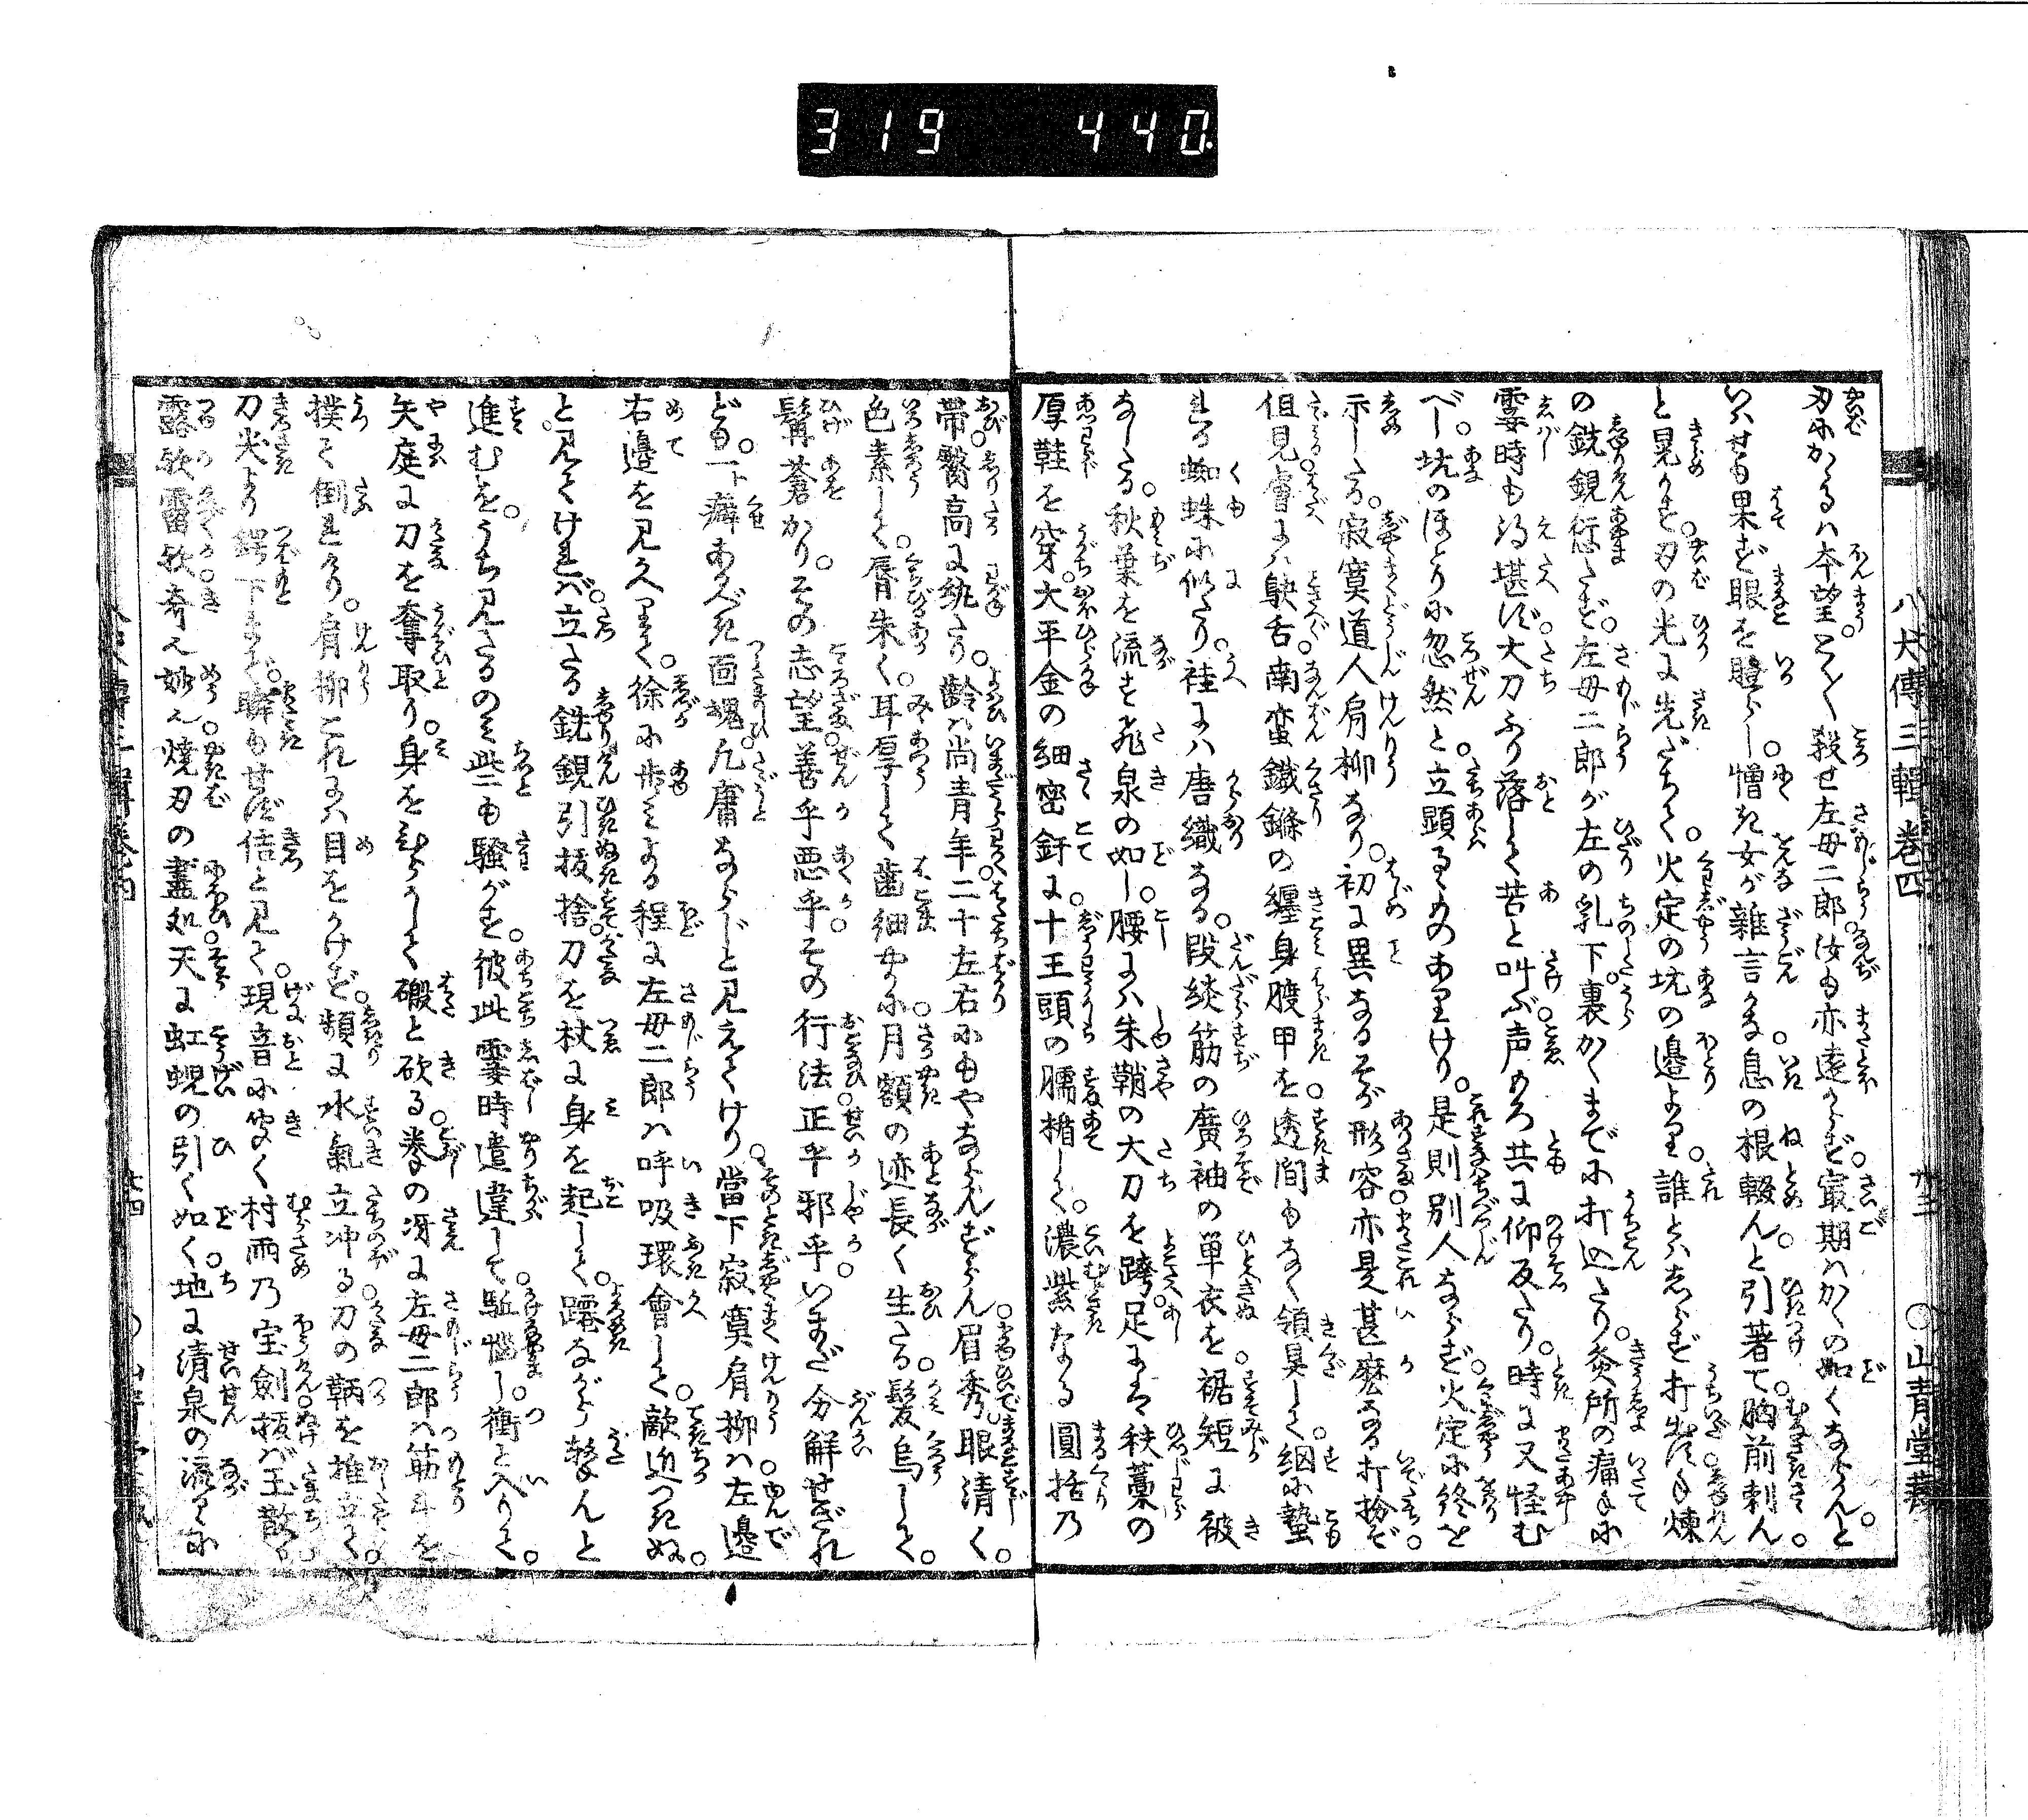 319 440
八犬傳三輯卷四
廿三
○山青堂藏
刃にかゝるは本望とく〳〵殺せ左母二郎汝も亦遠からず寂期はかくの如くならんと
いはせも果ず眼を瞪らし憎き女が雑言かな息の根輟んと引著て胸前刺ん
と晃かす刃の光に先だちて火定の坑の邊より誰とはしらず打出す手煉
の銑鋧愆たず左母二郎が左の乳下裏かくまでに打込たり灸所の痛手に
霎時も得堪ず大刀ふり落して苦と叫ぶ声もろ共に仰反たり時に又怪む
べし坑のほとりに忽然と立顕るゝものありけり是則別人ならず火定に終を
示したる寂寞道人肩柳なり初に異なるその形容亦是甚麼なる打扮ぞ
但見膚には鴃舌南蛮鐵鏁の纏身腹甲を透間もなく領具して絪に蟄
れる蜘蛛に似たり袿には唐織なる段綾筋の廣袖の単衣を裾短に被
なしたる秋葉を流す飛泉の如し腰には朱鞘の大刀を跨足には秩藁の
厚鞋を穿大平金の細密釬に十王頭の臑楯して濃紫なる圓括乃
帯臀高に紈たり齢は尚青年二十左右にもやならんずらん眉秀眼清く
色素して脣朱く耳厚して歯細やかに月額の迹長く生たる髪烏して
髯蒼かりその志望善乎悪乎その行法正乎邪乎いまだ分解せざれ
ども一癖あるべき面魂凡庸ならじと見えてけり當下寂寞肩柳は左邊
右邊を見かへりて徐に歩みよる程に左母二郎は呼吸環會して敵近つきぬ
と見てければ立たる銑鋧引抜捨刀を杖に身を起して蹲ながら撃んと
進むをうち見たるのみ些も騒がす彼此霎時遣違して駈惱し衝と入りて
矢庭に刀を奪取り身をひらかして礑と砍る拳の冴に左母二郎は筋斗を
撲て倒れけり肩柳これには目をかけず頻に水氣立冲る刀の鞆を推立て
刀尖より鍔下まで瞬もせず佶と見て現音に聞く村雨乃宝劍抜ば玉散る
露歟雷歟奇也妙也燒刃の畫処天に虹蜺の引く如く地に清泉の流るゝに